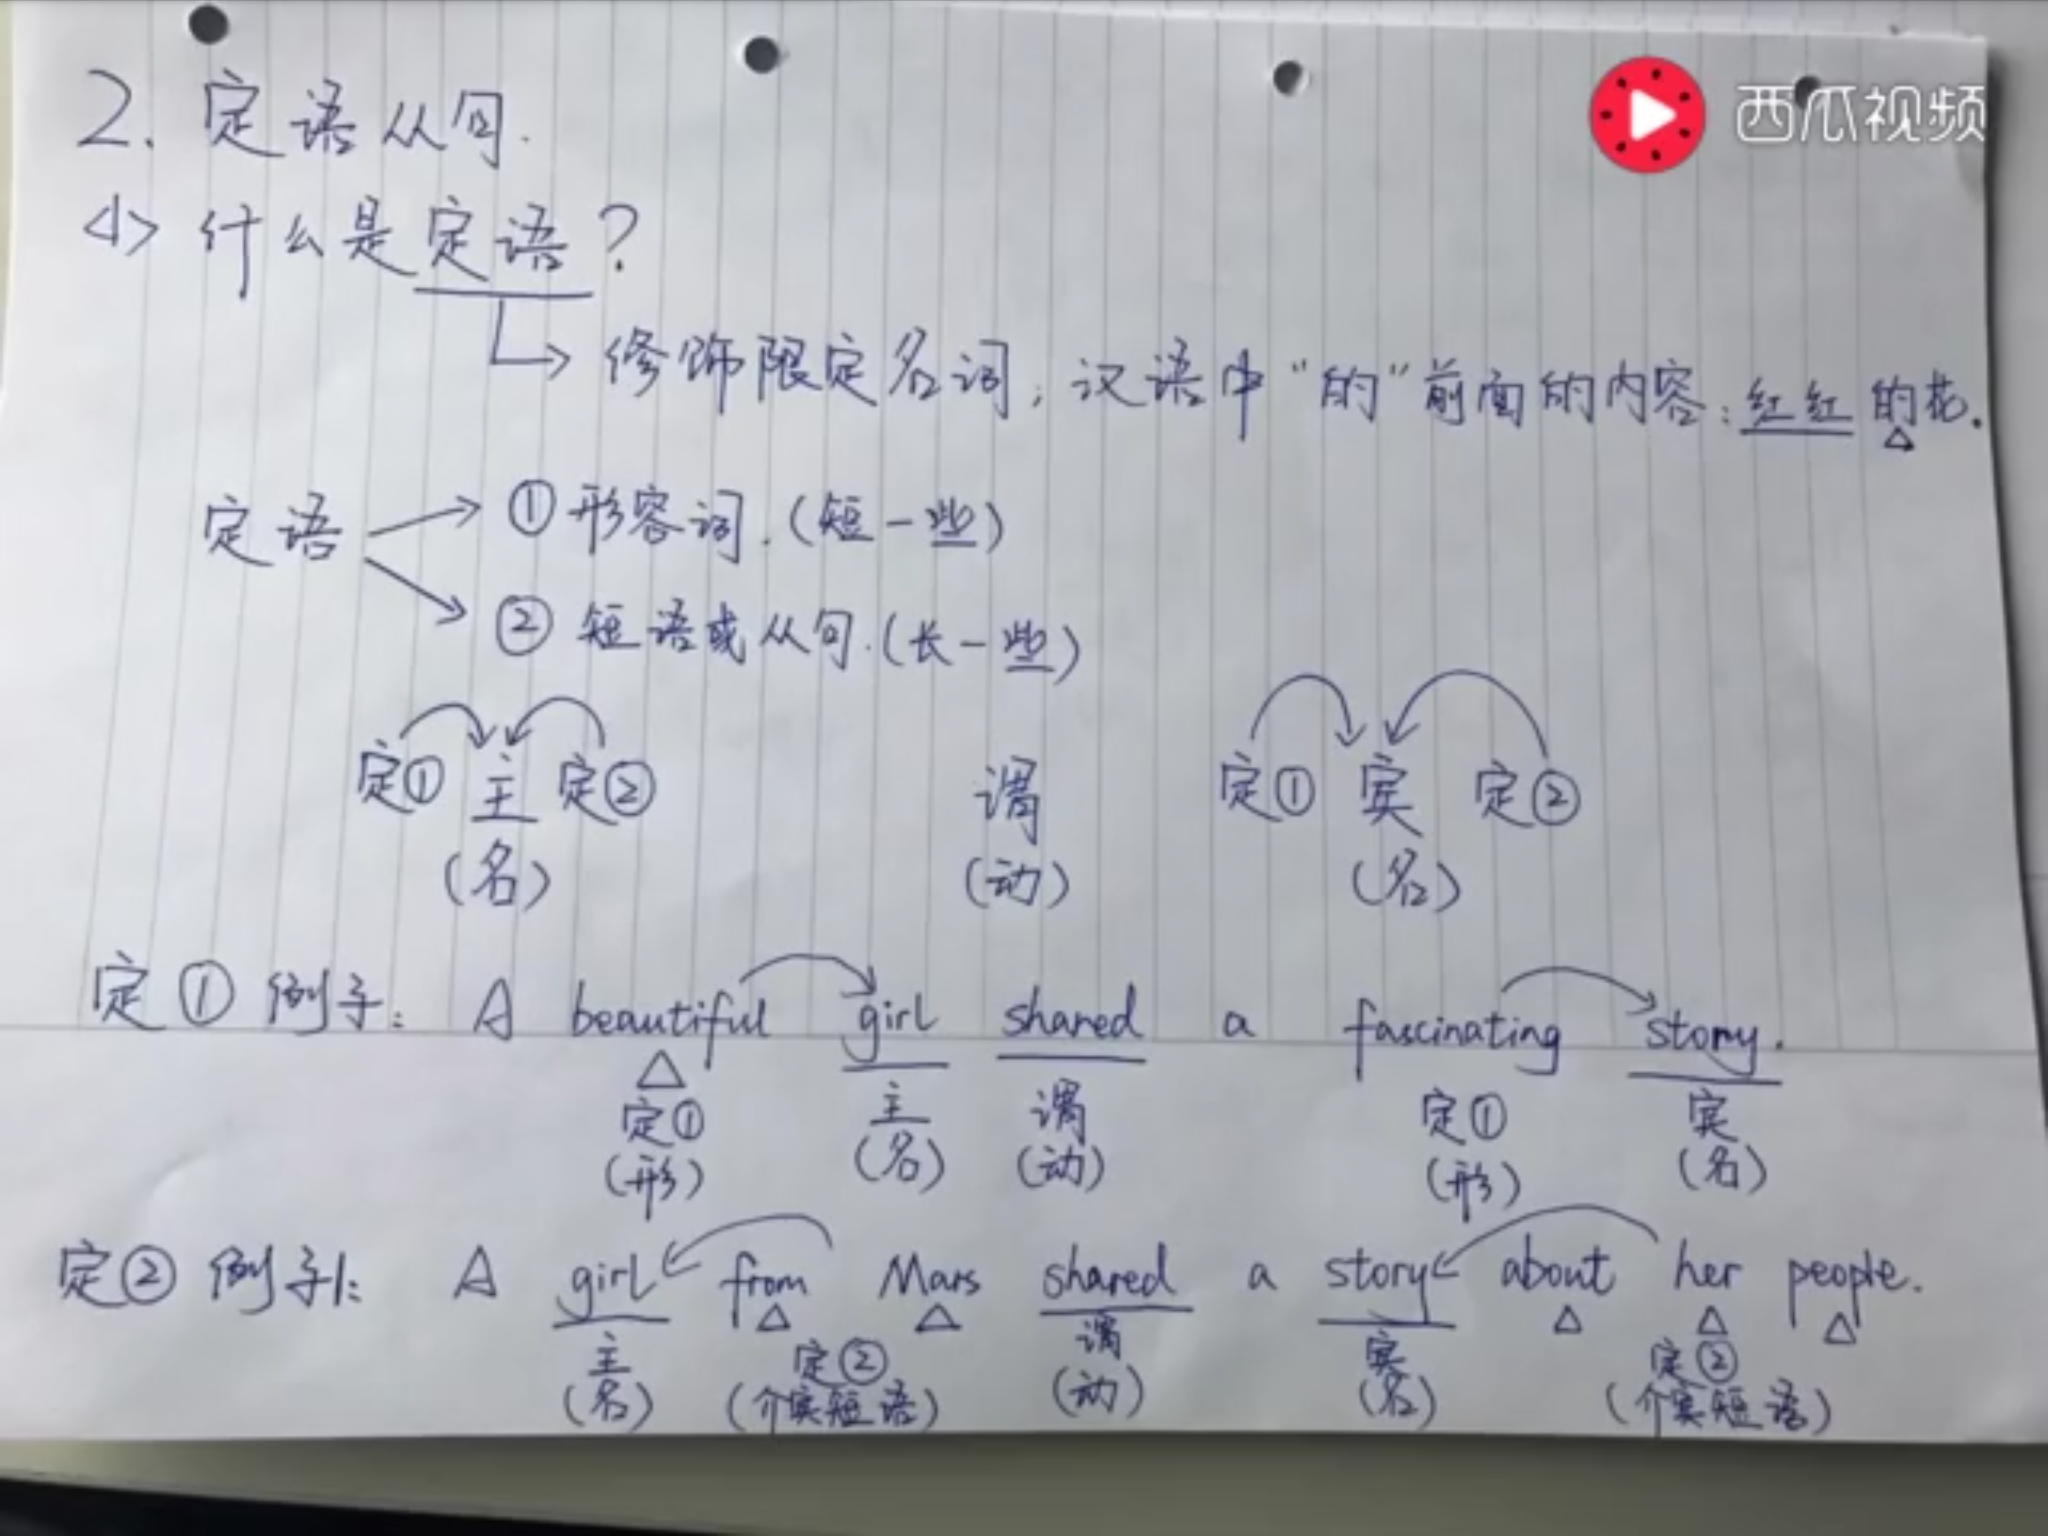 西瓜视频
2. 定语从句.
<1> 什么是定语?
修饰限定名词; 汉语中“的”前面的内容: 红红的花.
定语
① 形容词. (短一些)
② 短语或从句. (长一些)
定① 主 定② 谓 定① 宾 定②
(名) (动) (名)
定① 例子: A beautiful girl shared a fascinating story.
定① 主 谓 定① 宾
(形) (名) (动) (形) (名)
定② 例子1: A girl from Mars shared a story about her people.
主 定② 谓 宾 定②
(名) (介宾短语) (动) (名) (介宾短语)